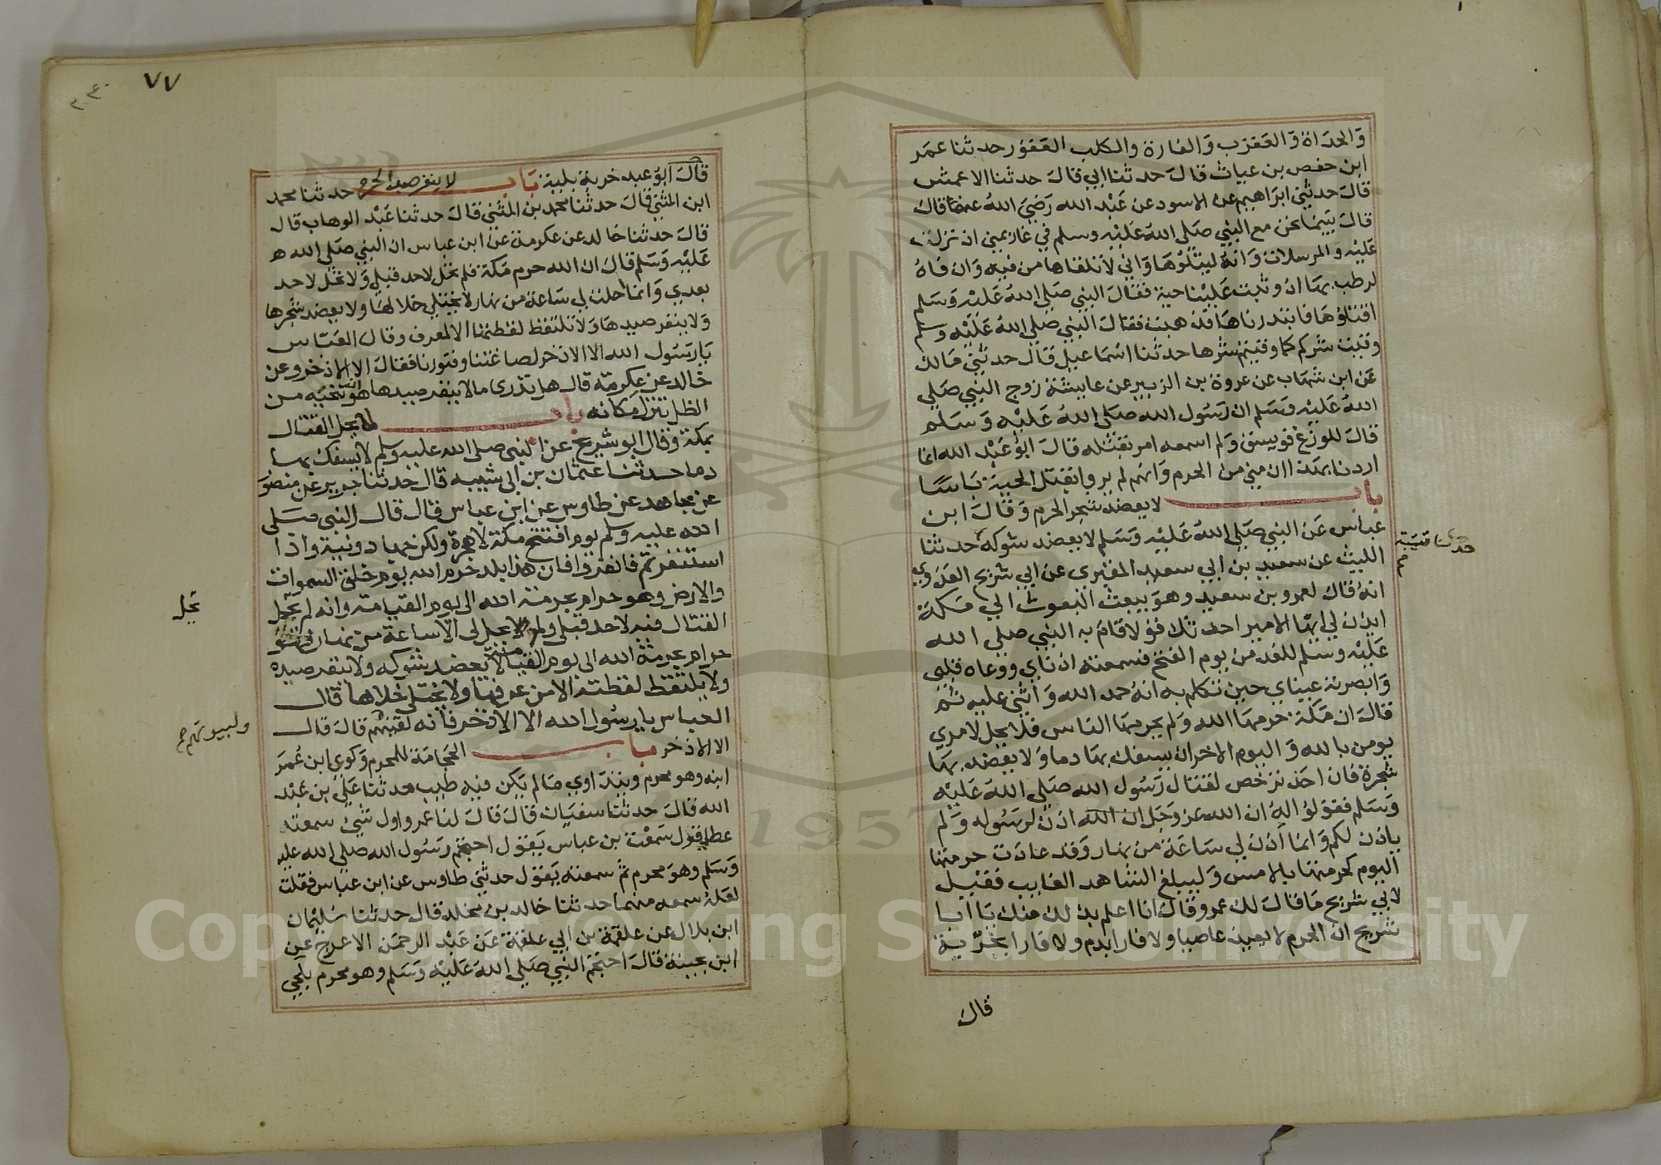 والحداة والعقرب والفارة والكلب العقور حدثنا عمر
ابن حفص بن غياث قال حدثنا ابي قال حدثنا الاعمش
قال حدثني ابراهيم عن الاسود عن عبد الله رضي الله عنه قال
قال بينما نحن مع النبي صلى الله عليه وسلم في غار بمنى اذ نزلت
عليه والمرسلات وانه ليتلوها واني لاتلقاها من فيه وان فاه
لرطب بها اذ وثبت علينا حية فقال النبي صلى الله عليه وسلم
اقتلوها فابتدرناها فذهبت فقال النبي صلى الله عليه وسلم
وقيت شركم كما وقيتم شرها حدثنا اسماعيل قال حدثني مالك
عن ابن شهاب عن عروة بن الزبير عن عايشة زوج النبي صلى
الله عليه وسلم ان رسول الله صلى الله عليه وسلم
قال للوزغ فويسق ولم اسمعه امر بقتله قال ابو عبد الله انما
اردنا بهذا ان منى من الحرم وانهم لم يروا بقتل الحية باسا
باب لا يعضد شجر الحرم وقال ابن
عباس عن النبي صلى الله عليه وسلم لا يعضد شوكه حدثنا
حدثنا قتيبة
الليث عن سعيد بن ابي سعيد المقبري عن ابي شريح العدوي
انه قال لعمرو بن سعيد وهو يبعث البعوث الى مكة
ايذن لي ايها الامير احدثك قولا قام به النبي صلى الله
عليه وسلم للغد من يوم الفتح فسمعته اذناي ووعاه قلبي
وابصرته عيناي حين تكلم به انه حمد الله واثنى عليه ثم
قال ان مكة حرمها الله ولم يحرمها الناس فلا يحل لامري
يومن بالله واليوم الاخر ان يسفك بها دما ولا يعضد بها
شجرة فان احد ترخص لقتال رسول الله صلى الله عليه
وسلم فقولوا له ان الله عز وجل ان الله اذن لرسوله ولم
ياذن لكم وانما اذن لي ساعة من نهار وقد عادت حرمتها
اليوم كحرمتها بالامس وليبلغ الشاهد الغايب فقيل
لابي شريح ما قال لك عمرو قال انا اعلم بذلك منك يا ابا
شريح ان الحرم لا يعيذ عاصيا ولا فارا بدم ولا فارا بخربة
قال
٧٧
قال ابو عبد خربة بلية باب لا ينفر صيد الحرم حدثنا محمد
ابن المثنى قال حدثنا محمد بن المثنى قال حدثنا عبد الوهاب قال
قال حدثنا خالد عن عكرمة عن ابن عباس ان النبي صلى الله
عليه وسلم قال ان الله حرم مكة فلم تحل لاحد قبلي ولا تحل لاحد
بعدي وانما احلت لي ساعة من نهار لا يختلى خلالها ولا يعضد شجرها
ولا ينفر صيدها ولا تلتقط لقطتها الا لمعرف وقال العباس
يا رسول الله الا الاذخر لصاغتنا وقبورنا فقال الا الاذخر وعن
خالد عن عكرمة قال هل تدري ما لا ينفر صيدها هو ان تنحيه من
الظل ينزل مكانه باب لا يحل القتال
بمكة وقال ابو شريح عن النبي صلى الله عليه وسلم لا يسفك بها
دما حدثنا عثمان بن ابي شيبه قال حدثنا جرير عن منصور
عن مجاهد عن طاوس عن ابن عباس قال قال النبي صلى
الله عليه وسلم يوم افتتح مكة لا هجرة ولكن جهاد ونية واذا
استنفرتم فانفروا فان هذا بلد حرم الله يوم خلق السموات
والارض وهو حرام بحرمة الله الى يوم القيامة وانه لم يحل
يحل
القتال فيه لاحد قبلي ولم يحل لي الا ساعة من نهار فهو
حرام بحرمة الله الى يوم القيامة لا يعضد شوكه ولا ينفر صيده
ولا يلتقط لقطته الا من عرفها ولا يختلى خلاها قال
العباس يا رسول الله الا الاذخر فانه لقينهم قال قال
ولبيوتهم
الا الاذخر باب الحجامة للمحرم وكوى ابن عمر
ابنه وهو محرم ويتداوي ما لم يكن فيه طيب حدثنا علي بن عبد
الله قال حدثنا سفيان قال قال لنا عمرو اول شيئ سمعته
عطا يقول سمعت بن عباس يقول احتجم رسول الله صلى الله عليه
وسلم وهو محرم ثم سمعته يقول حدثني طاوس عن ابن عباس فقلت
لعله سمعه منهما حدثنا خالد بن مخلد قال حدثنا سليمان
ابن بلال عن علقمة بن ابي علقمة عن عبد الرحمن الاعرج عن
ابن بحينة قال احتجم النبي صلى الله عليه وسلم وهو محرم بلحي
Copyright © King Saud University
1957